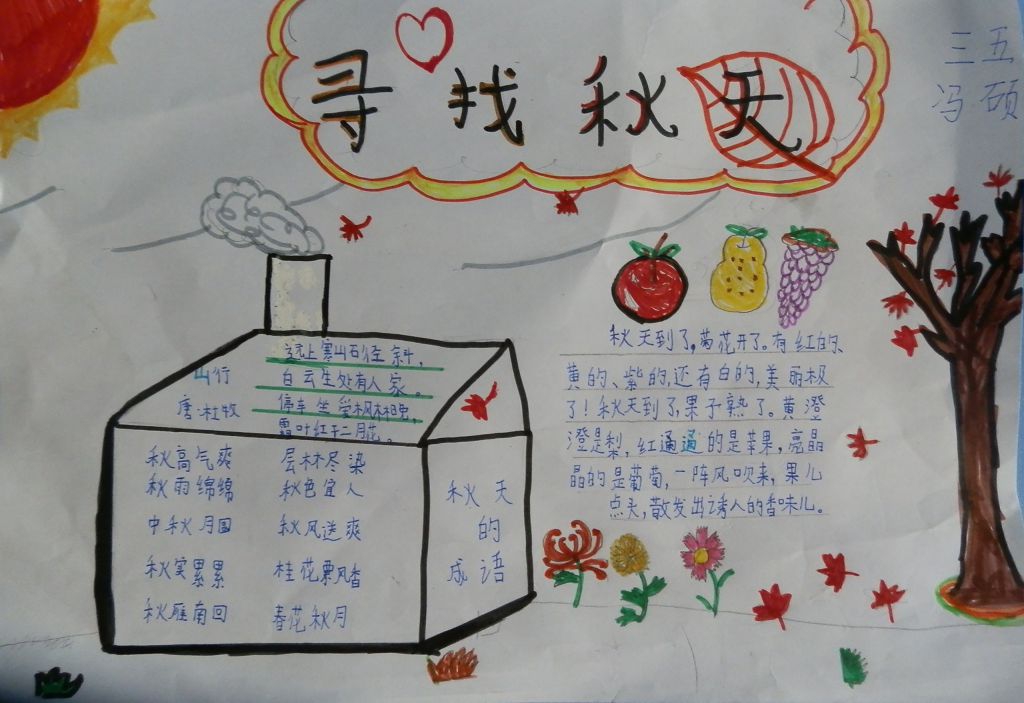 寻找秋天
三五
冯硕
山行
唐·杜牧
远上寒山石径斜,
白云生处有人家。
停车坐爱枫林晚,
霜叶红于二月花。
秋高气爽 层林尽染
秋雨绵绵 秋色宜人
中秋月圆 秋风送爽
秋实累累 桂花飘香
秋雁南回 春花秋月
秋天
的
成语
秋天到了,菊花开了。有红的、
黄的、紫的,还有白的,美丽极
了!秋天到了,果子熟了。黄澄
澄是梨,红通通的是苹果,亮晶
晶的是葡萄,一阵风吹来,果儿
点头,散发出诱人的香味儿。